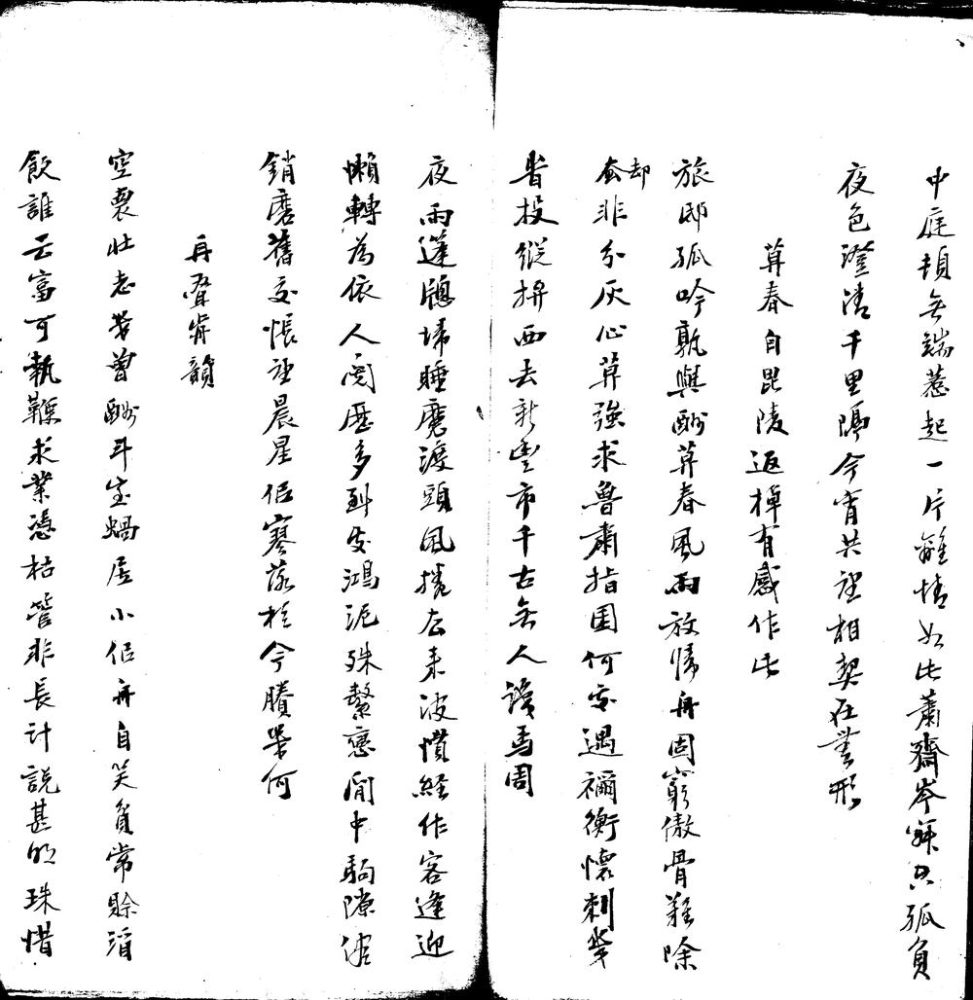 中庭頓無端惹起一片離情如此蕭齋岑寂只孤負
夜色澄清千里隔今宵共望相契在業形
算春自毘陵返棹有感作此
旅邸孤吟孰與酬算春風雨放歸舟固窮傲骨難除
却非分灰心算強求魯肅指囷何處遇禰衡懷刺幾
昔投縱拚西去新豐市千古無人識馬周
夜雨蓬牕歸睡魔渡頭風捲去來波慣経作客逢迎
懶轉為依人閱歷多到處鴻泥殊繫戀間中駒隙
銷磨舊交悵望晨星侶寥落於今賸幾何
再疊前韻
空裹壯志幾曾酬斗室蝸居小侶舟自笑負常賒酒
飲誰云富可執鞭求業憑枯管非長計說甚明珠惜